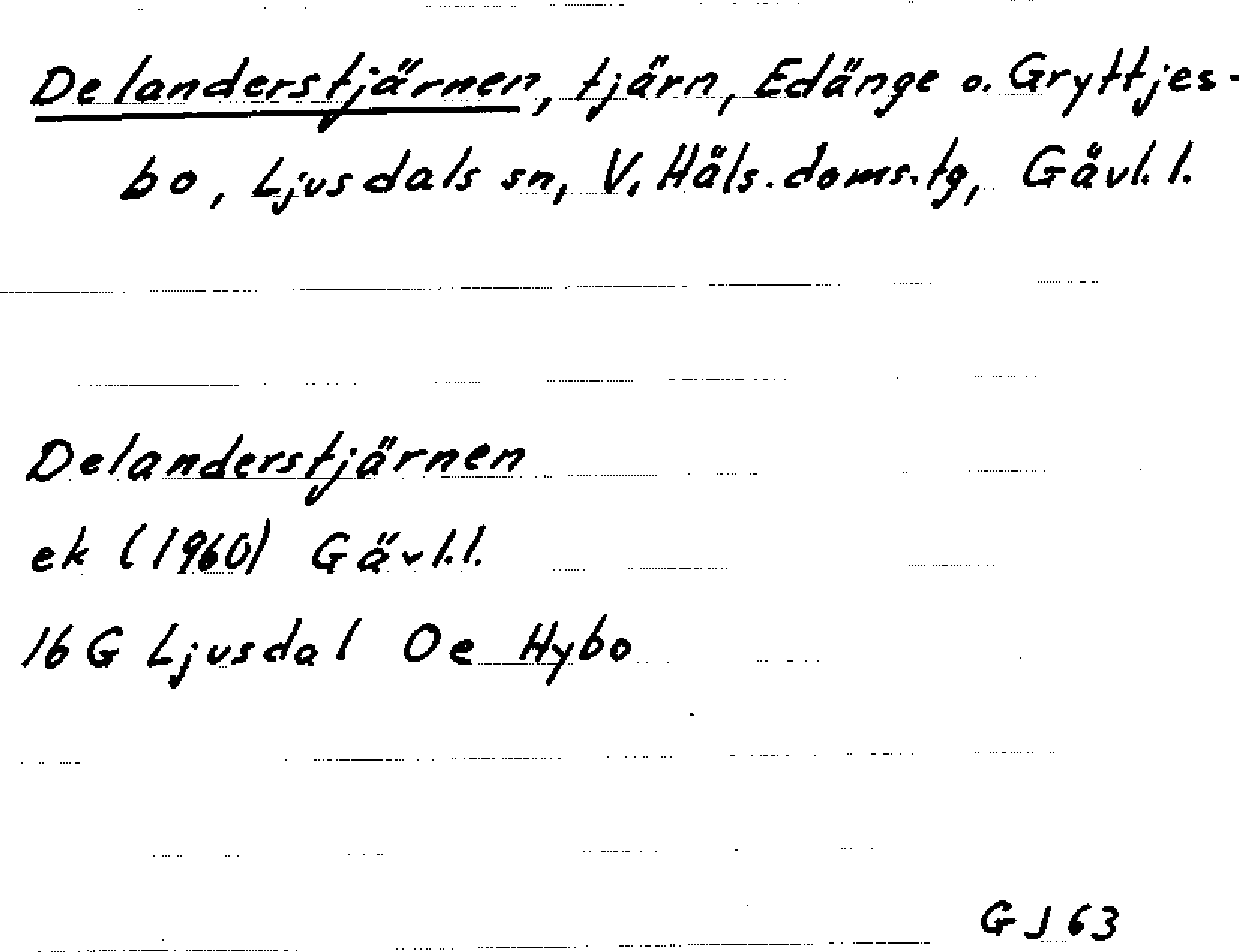 Delanderstjärnen, tjärn, Edänge o. Gryttjes-
bo, Ljusdals sn, V. Häls. doms.tg, Gävl. l.
Delanderstjärnen
ek (1960) Gävl.l.
16 G Ljusdal Oe Hybo
GJ 63